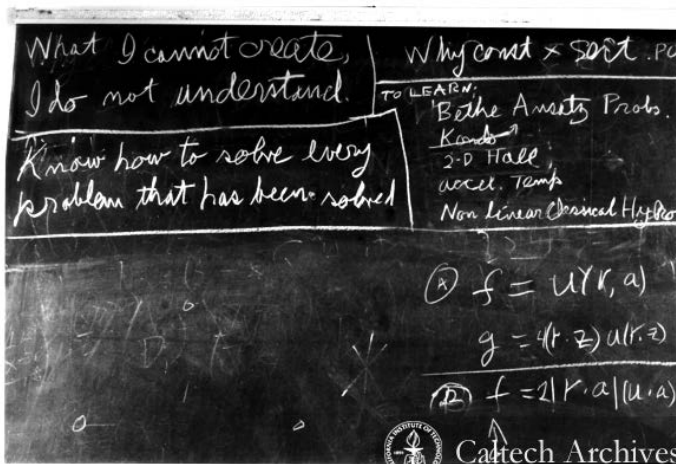 What I cannot create,
I do not understand.
Know how to solve every
problem that has been solved
Why const × sort . PO
TO LEARN:
Bethe Ansatz Probs.
Kondo
2-D Hall
accel. Temp
Non linear Classical Hydro
Ⓐ f = u(r, a)
g = 4(r·z) u(r, z)
Ⓑ f = 2|r·a|(u·a)
CALIFORNIA INSTITUTE OF TECHNOLOGY
Caltech Archives